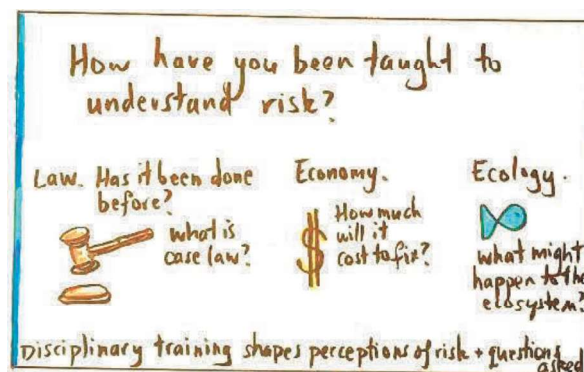 How have you been taught to
understand risk?
Law. Has it been done
before?
what is
case law?
Economy.
$
How much
will it
cost to fix?
Ecology.
what might
happen to the
ecosystem?
Disciplinary training shapes perceptions of risk + questions
asked